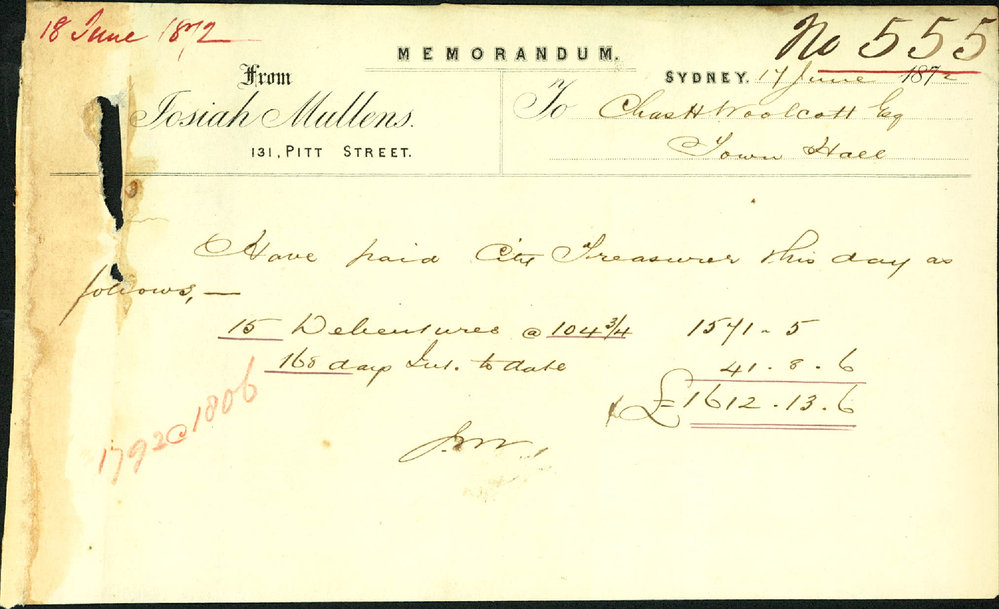 18 June 1872
No 555
MEMORANDUM.
From
Josiah Mullens.
131, PITT STREET.
SYDNEY. 17 June 1872
To Chas H Woolcott Esq
Town Hall
Have paid City Treasurer this day as
follows, —
15 Debentures @ 104 3/4 1571 - 5
168 days Int. to date 41 - 8 - 6
£1612 - 13 - 6
J.M.
1792@1806